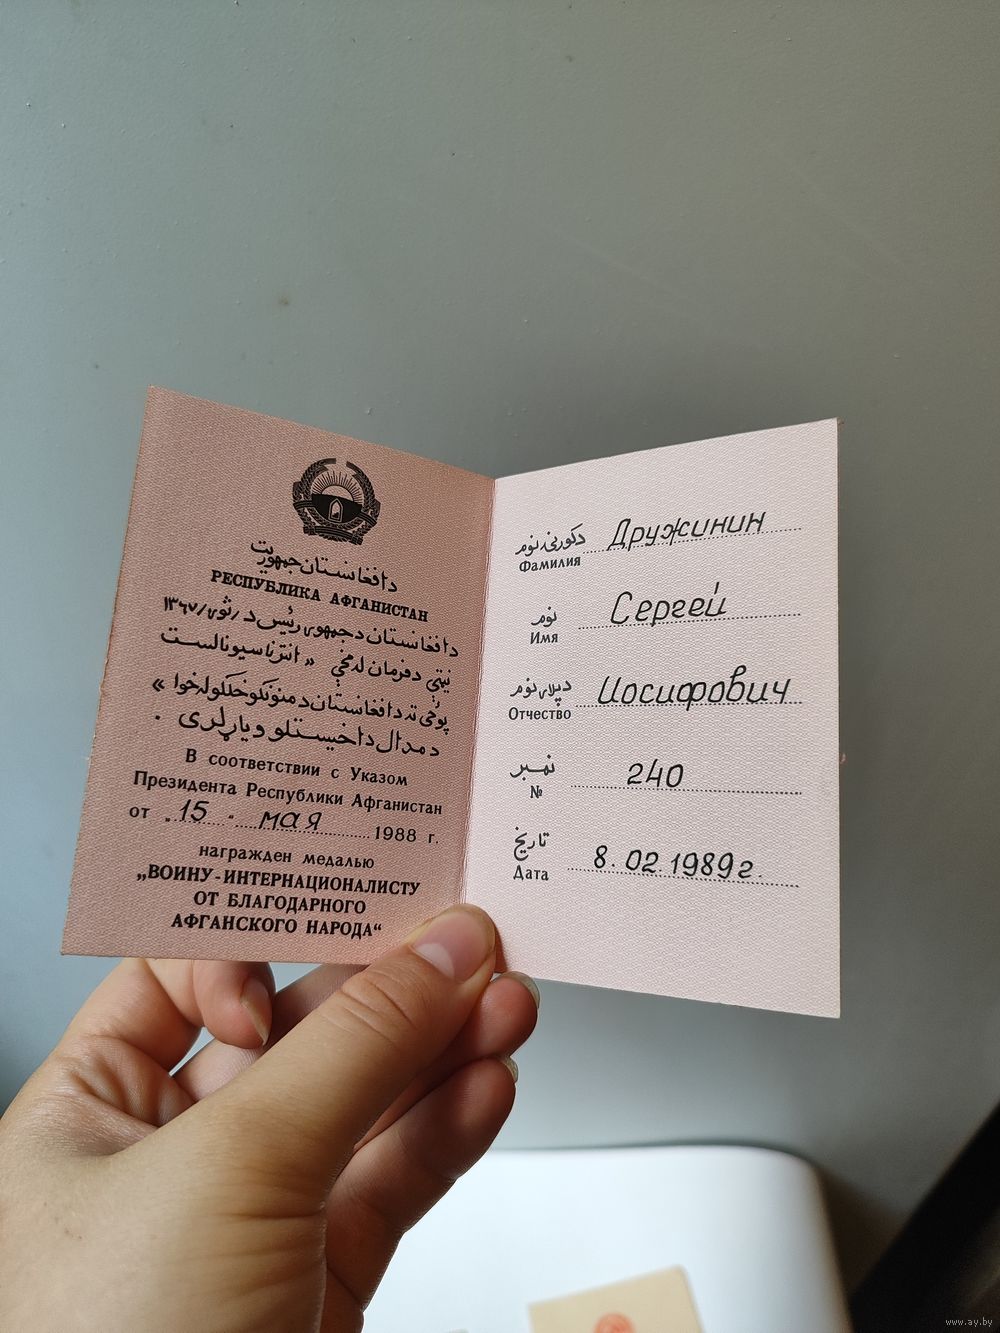 دافغانستان جمهوریت
РЕСПУБЛИКА АФГАНИСТАН
دافغانستان دجمهور رئیس د / ثور / ۱۳۶۷
نیتې دفرمان له مخې » انترناسیونالست
پوځي ته دافغانستان دمنونکو خلکو له خوا «
دمدال داخیستلو ویاړ لری .
В соответствии с Указом
Президента Республики Афганистан
от „15 “ мая 1988 г.
награжден медалью
„ВОИНУ-ИНТЕРНАЦИОНАЛИСТУ
ОТ БЛАГОДАРНОГО
АФГАНСКОГО НАРОДА“
دکورنۍ نوم Дружинин
Фамилия
نوم Сергей
Имя
دپلار نوم Иосифович
Отчество
نمبر 240
№
تاریخ 8.02.1989г.
Дата
www.ay.by